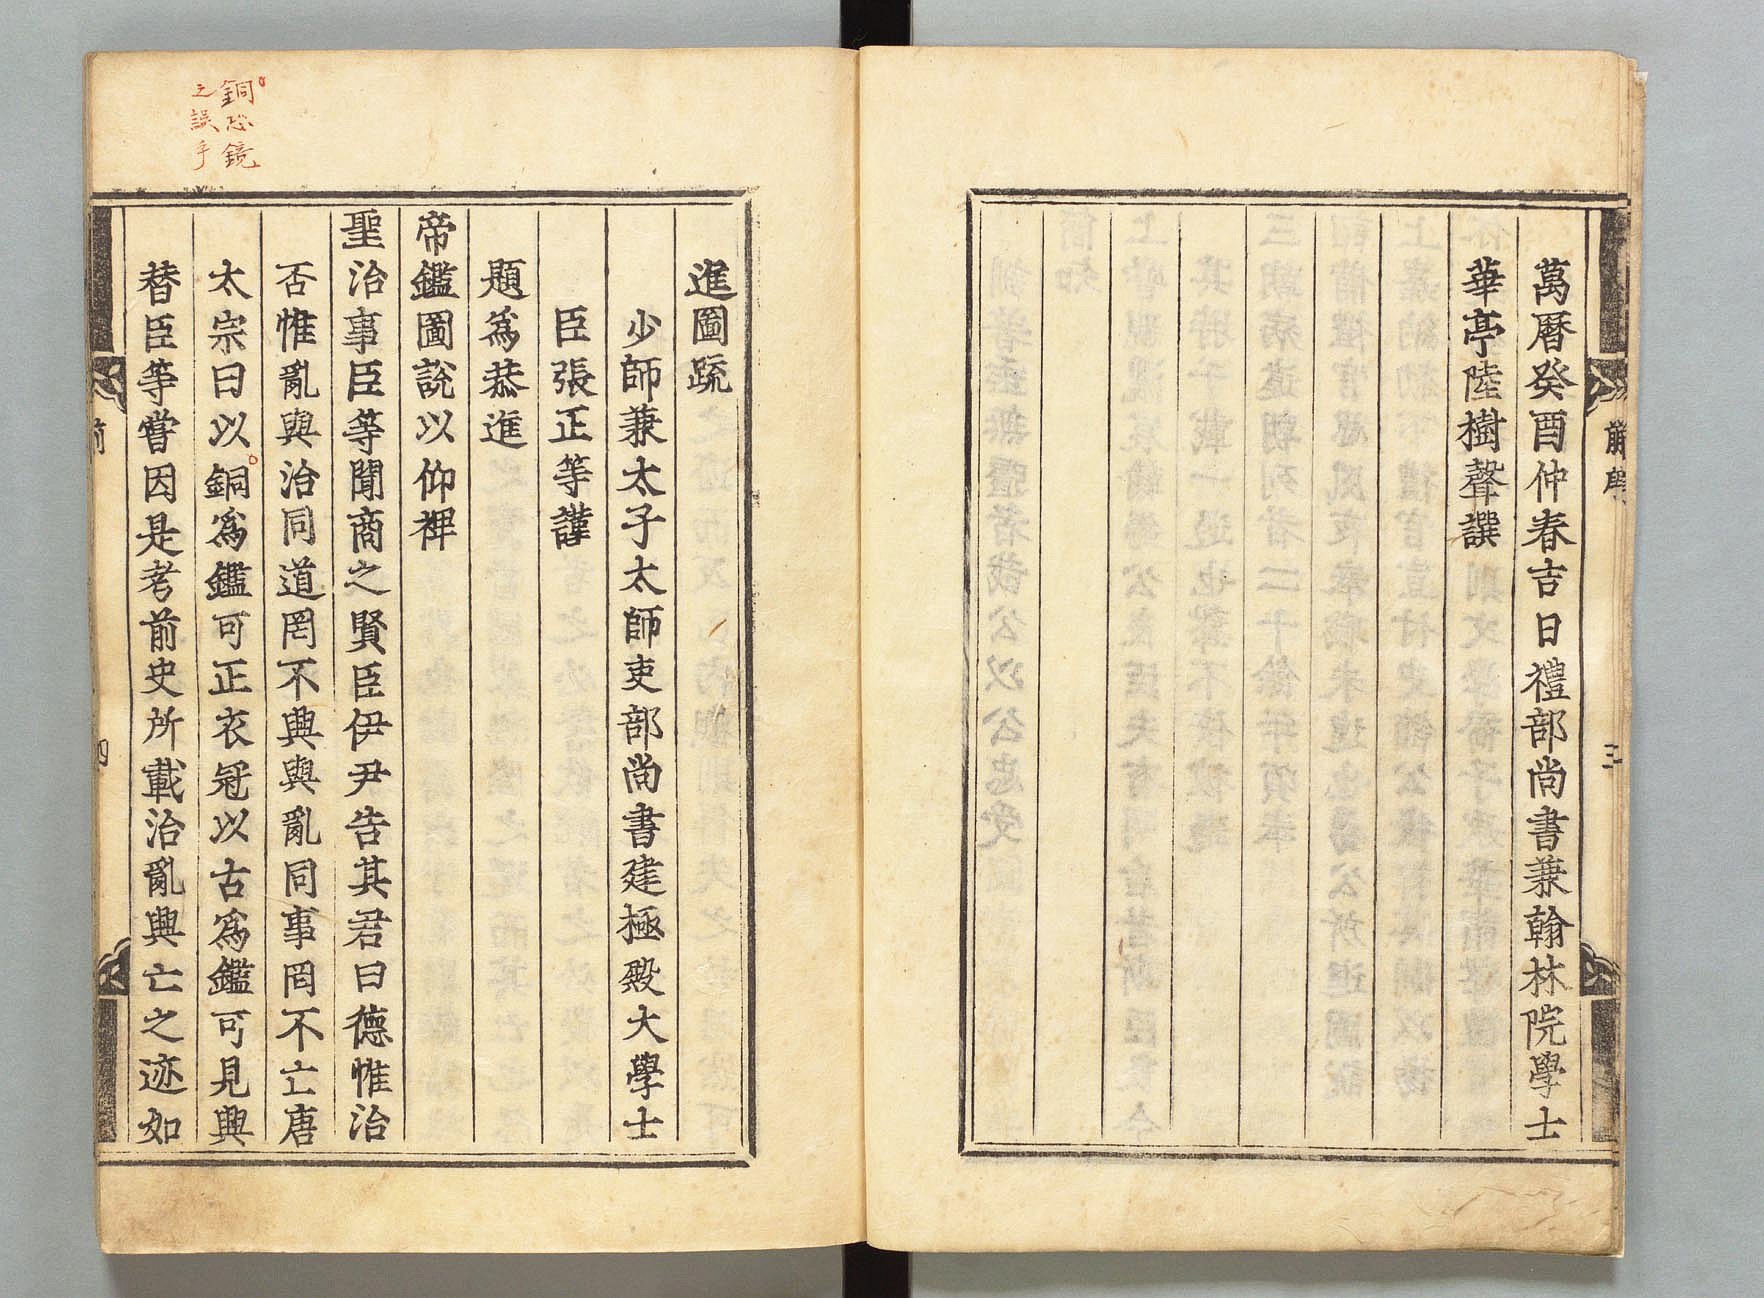 萬曆癸酉仲春吉日禮部尚書兼翰林院學士
華亭陸樹聲譔
三
進圖疏
少師兼太子太師吏部尚書建極殿大學士
臣張正等謹
題爲恭進
帝鑑圖說以仰裨
聖治事臣等聞商之賢臣伊尹告其君曰德惟治
否惟亂與治同道罔不興與亂同事罔不亡唐
太宗曰以銅爲鑑可正衣冠以古爲鑑可見興
替臣等嘗因是考前史所載治亂興亡之迹如
銅恐鏡
之誤乎